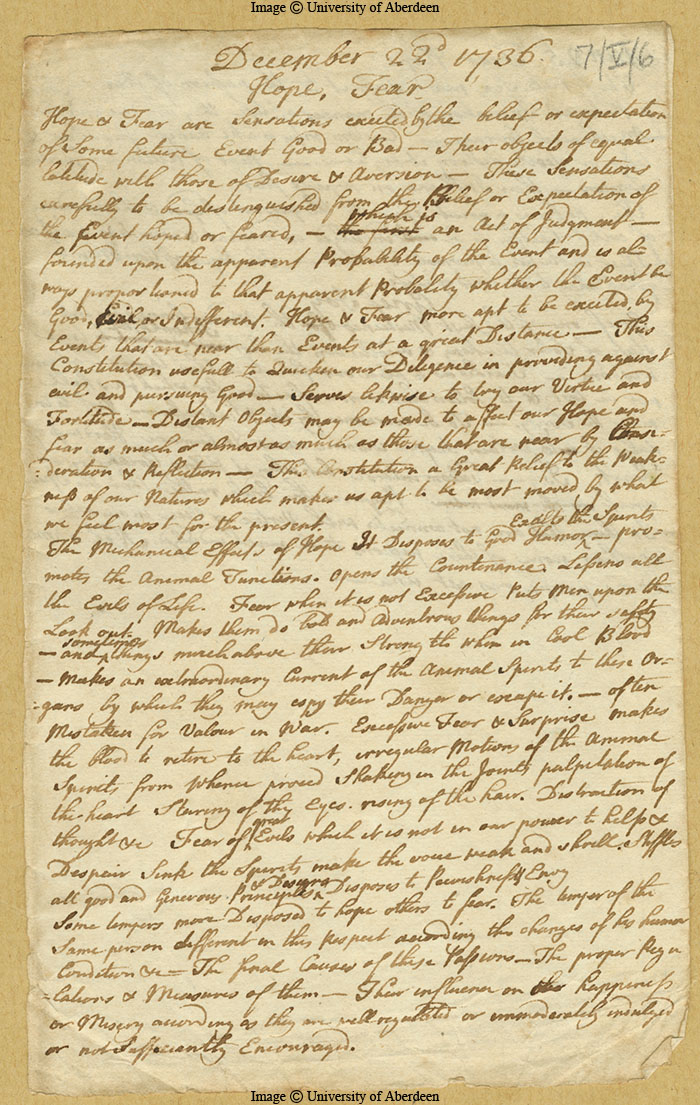 Image © University of Aberdeen
December 22d 1736.
7/V/6
Hope, Fear
Hope & Fear are Sensations excited by the belief or expectation
of Some future Event Good or Bad — Their objects of equal
latitude with those of Desire & Aversion — These Sensations
carefully to be distinguished from the Belief or Expectation of
which is
the Event hoped or feared, — an Act of Judgment —
founded upon the apparent Probability of the Event and is al=
ways proportioned to that apparent Probality whether the Event be
Good, Evil or Indifferent. Hope & Fear more apt to be excited by
Events that are near than Events at a great Distance — This
Constitution usefull to Quicken our Diligence in providing against
evil and pursuing Good — Serves likewise to try our Virtue and
Fortitude — Distant Objects may be made to affect our Hope and
fear as much or almost as much as those that are near by Consi=
deration & Reflection — This Constitution a Great Relief to the Weak=
ness of our Natures which makes us apt to be most moved by what
we feel most for the present.
Exalts the Spirits
The Mechanical Effects of Hope It Disposes to Good Humor — pro=
motes the Animal Functions. Opens the Countenance. Lessens all
the Evils of Life. Fear when it is not Excessive Puts Men upon the
Look out. Makes them do bold and adventrous things for their safety
sometimes
— and things much above their Strength when in Cool Blood
— Makes an extraordinary Current of the Animal Spirits to these Or=
gans by which they may espy their Danger or escape it. — often
Mistaken for Valour in War. Excessive Fear & Surprise makes
the blood to retire to the heart, irregular Motions of the Animal
Spirits from whence proceed Shaking in the Joints palpitation of
the heart Staring of the Eyes. rising of the hair. Distraction of
thought &c Fear of great Evils which it is not in our power to help &
Despair Sink the Spirits make the voice weak and shrill. Stiffles
all good and Generous Principles & Desires Disposes to Peevishness & Envy
Some tempers more Disposed to hope others to fear. The temper of the
Same person different in this Respect according to the changes of his humor
Condition &c — The final Causes of these Passions — The proper Regu
=lations & Measures of them — Their influence on happiness
or Misery according as they are well regulated or immoderately indulged
or not Sufficiently Encouraged.
Image © University of Aberdeen